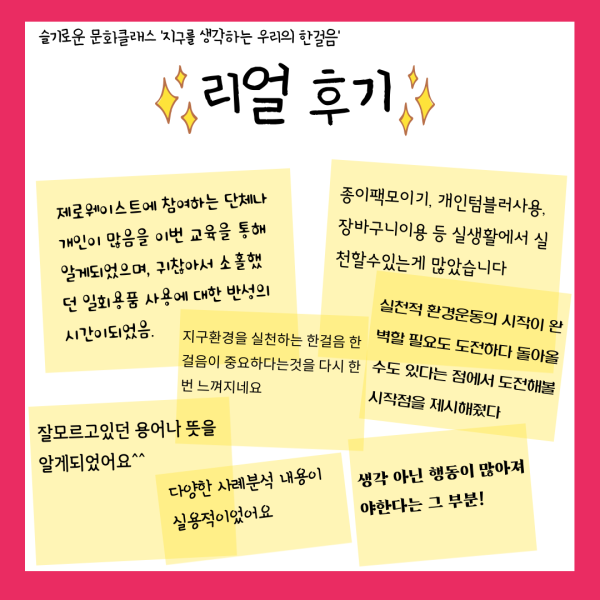 슬기로운 문화클래스 '지구를 생각하는 우리의 한걸음'
리얼 후기
제로웨이스트에 참여하는 단체나
개인이 많음을 이번 교육을 통해
알게되었으며, 귀찮아서 소홀했
던 일회용품 사용에 대한 반성의
시간이되었음.
종이팩모이기, 개인텀블러사용,
장바구니이용 등 실생활에서 실
천할수있는게 많았습니다
실천적 환경운동의 시작이 완
벽할 필요도 도전하다 돌아올
수도 있다는 점에서 도전해볼
시작점을 제시해줬다
지구환경을 실천하는 한걸음 한
걸음이 중요하다는것을 다시 한
번 느껴지네요
잘모르고있던 용어나 뜻을
알게되었어요^^
다양한 사례분석 내용이
실용적이었어요
생각 아닌 행동이 많아져
야한다는 그 부분!